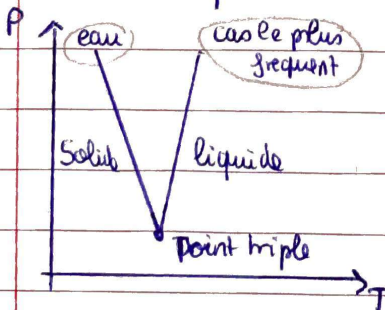 P
eau
cas le plus
frequent
Solide
liquide
point triple
T